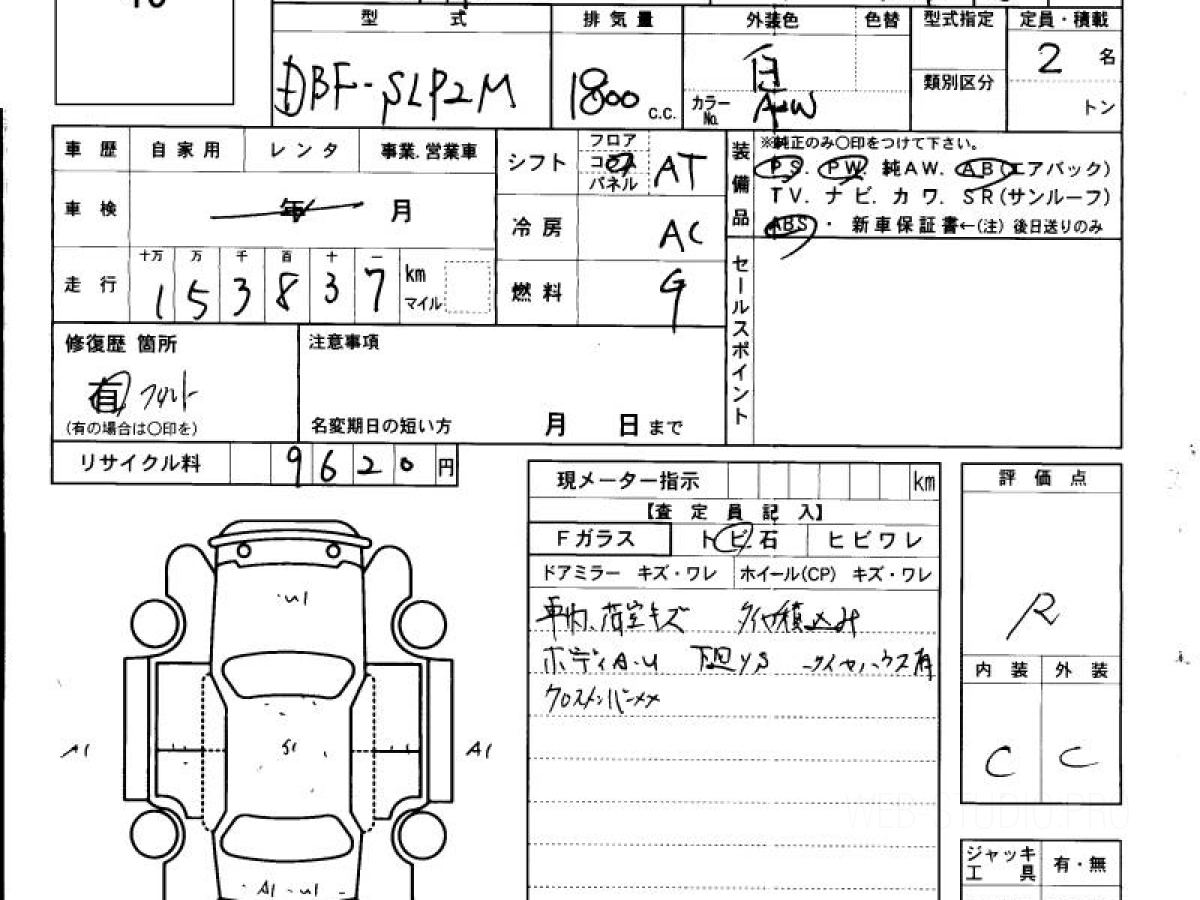 型 式 排気量 外装色 色替 型式指定 定員・積載
DBF-SLP2M 1800 C.C. 白 2 名
カラーNo. 類別区分 トン
車歴 自家用 レンタ 事業.営業車 シフト フロア コラム パネル AT 装備品 ※純正のみ○印をつけて下さい。
PS. PW. 純AW. AB(エアバック)
車検 年 月 冷房 AC TV. ナビ. カワ. SR(サンルーフ)
ABS ・ 新車保証書←(注) 後日送りのみ
走行 十万 万 千 百 十 一
1 5 3 8 3 7 km マイル 燃料 G セールスポイント
修復歴 箇所 注意事項
有 フロント
(有の場合は○印を) 名変期日の短い方 月 日 まで
リサイクル料 9 6 2 0 円
現メーター指示 km 評価点
【査定員記入】
Fガラス トビ石 ヒビワレ
ドアミラー キズ・ワレ ホイール(CP) キズ・ワレ
車内、荷室キズ タイヤ積込み R
ボディA-U 下回YS 有
クロスメンバーメメ 内装 外装
C C
・U1
S1
A1 A1
A1 - U1
WEB-STUDIO.PRO
ジャッキ工具 有・無